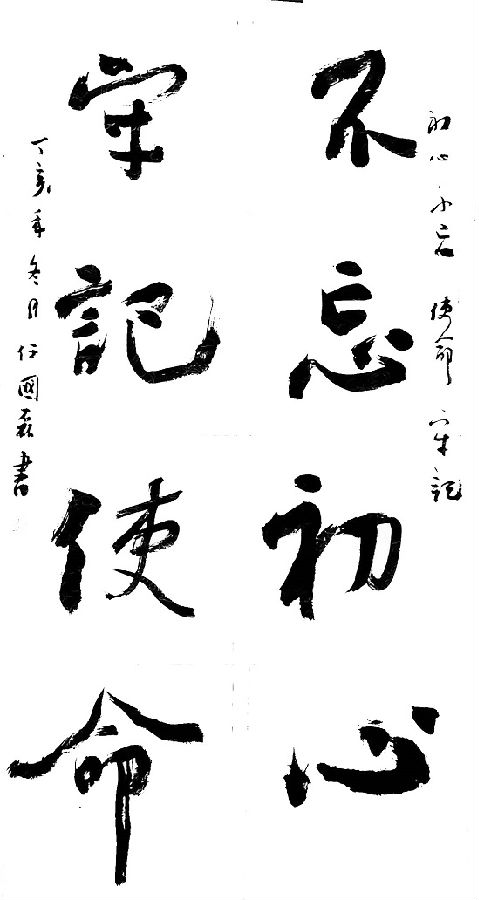 初心不忘 使命牢記
不忘初心
牢記使命
丁亥年冬月任國磊書